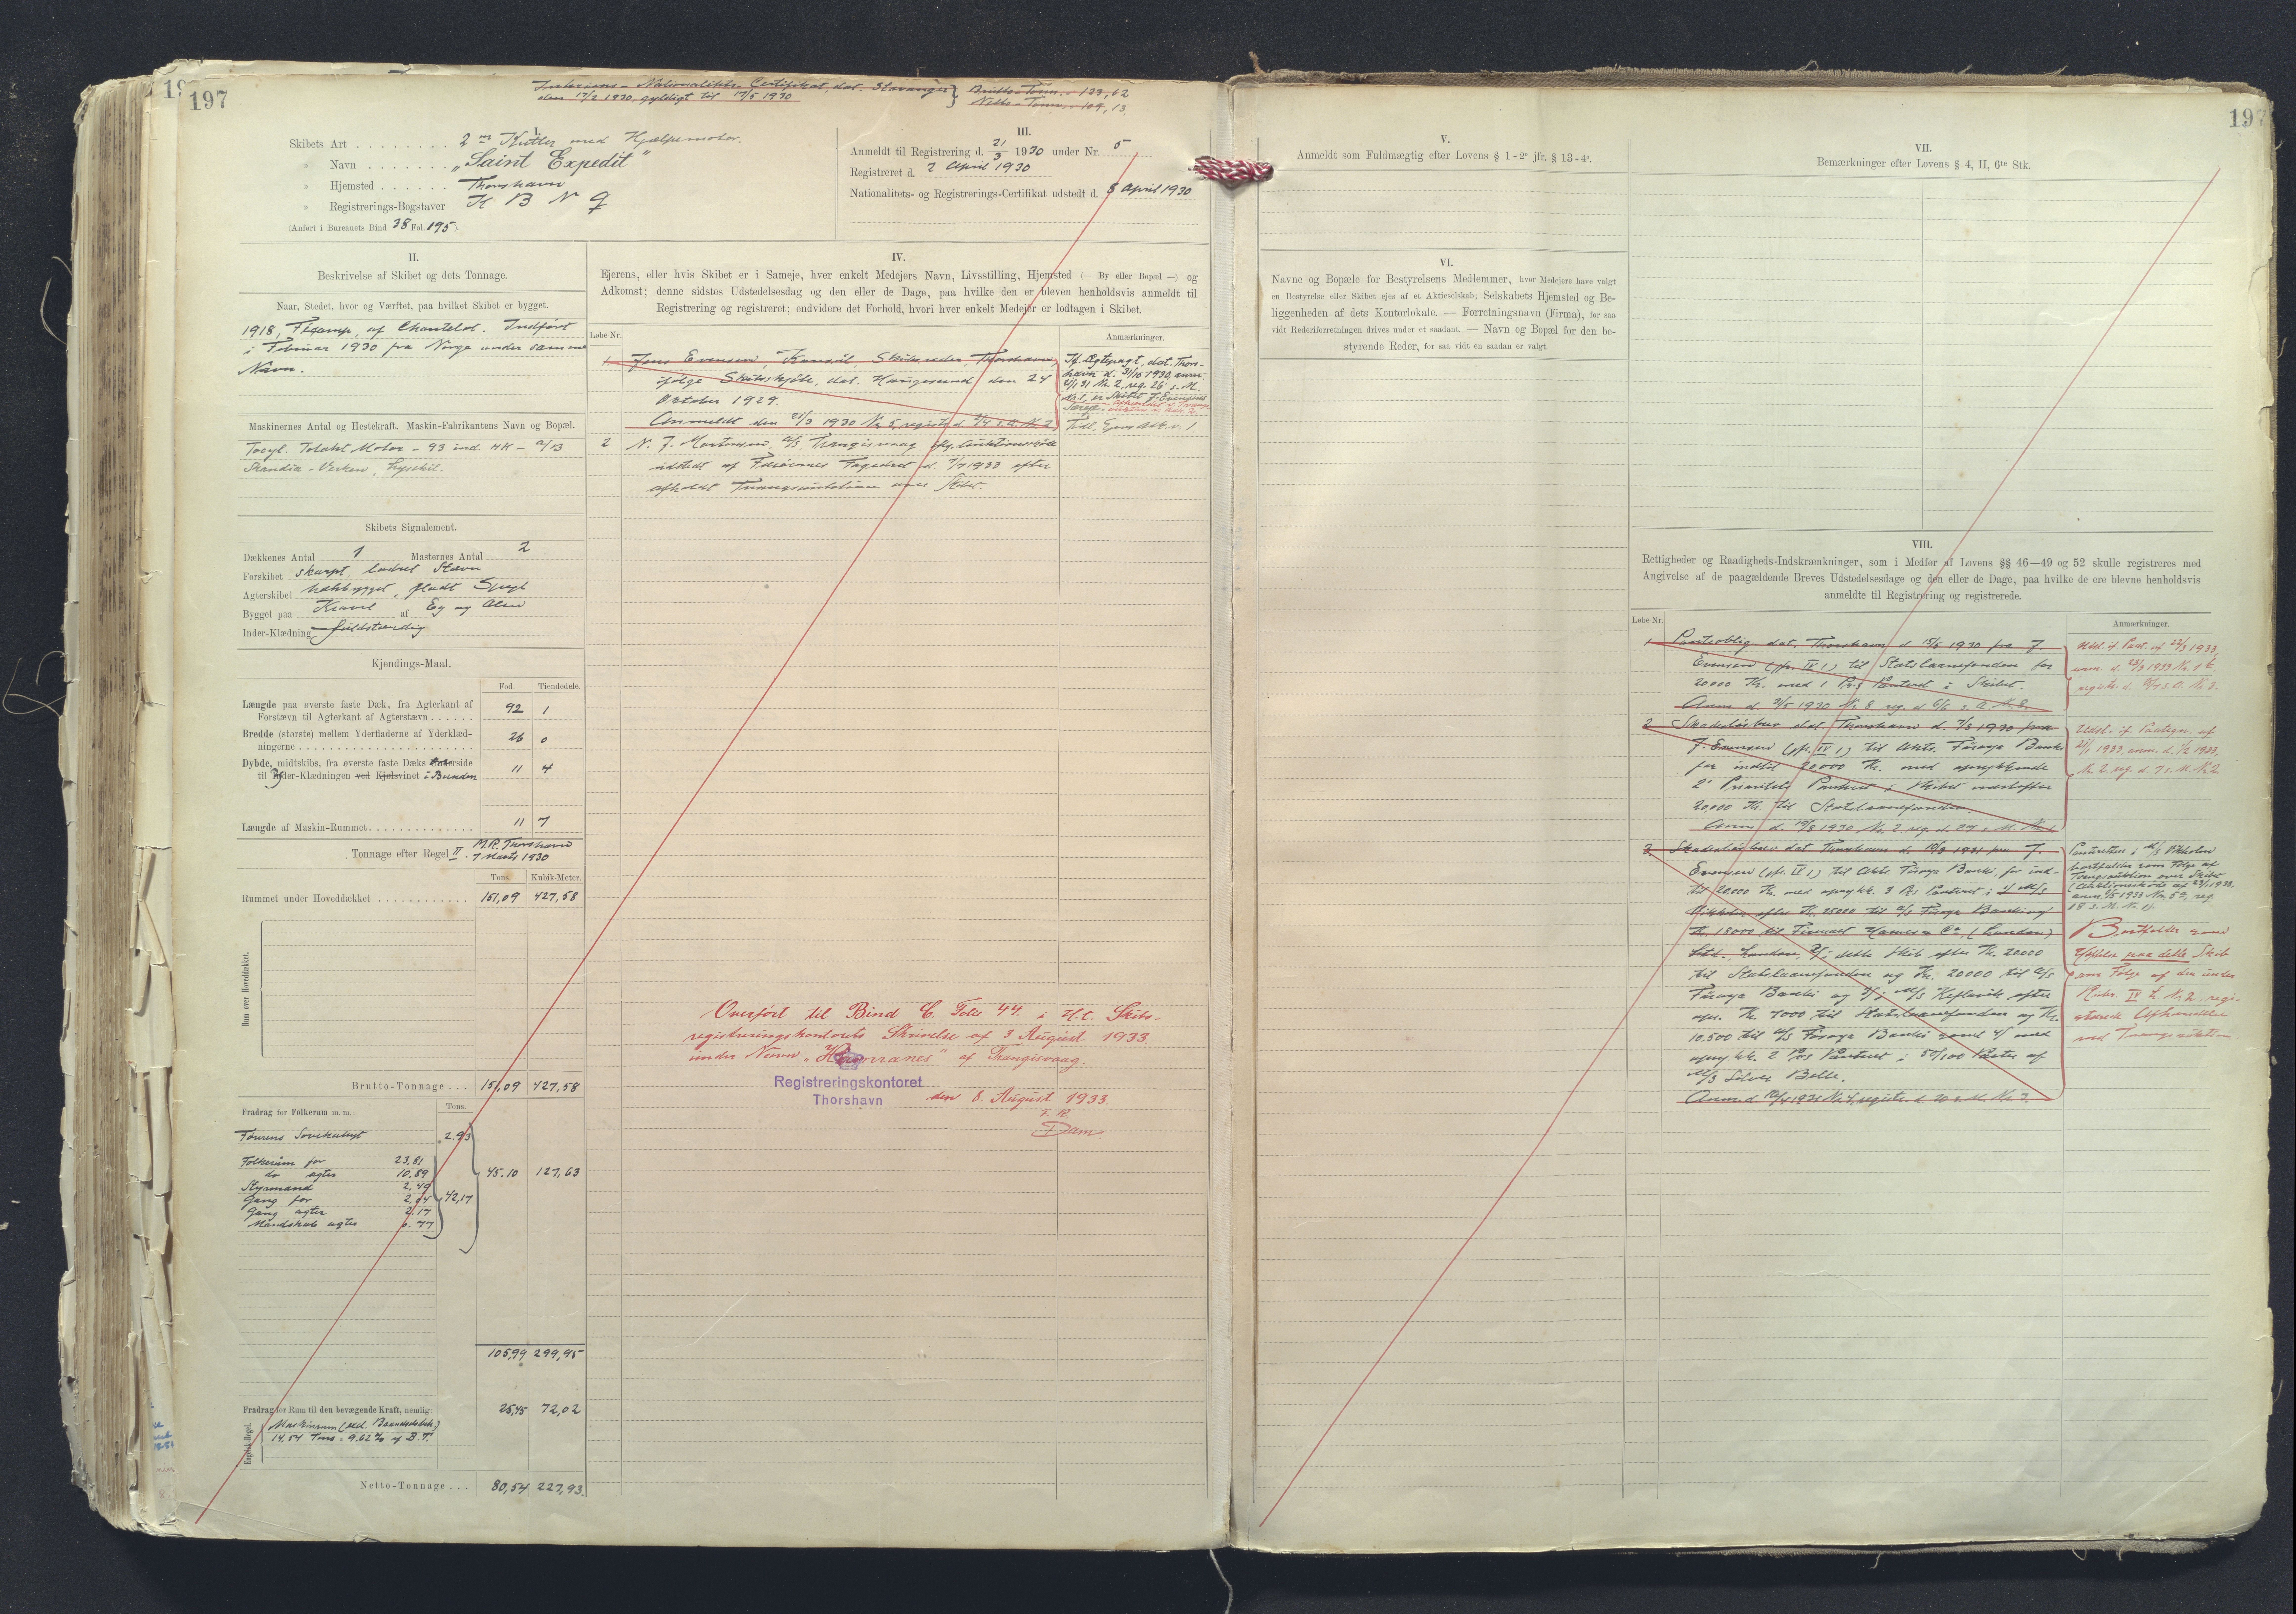 197
Interims-Nationalitets-Certifikat, dat. Stavanger
den 17/2 1930, gyldigt til 17/5 1930
Brutto-Tonn. - 133,62
Netto-Tonn. - 109,13
I.
Skibets Art 2 m Kutter med Hjælpemotor.
» Navn "Saint Expedit"
» Hjemsted Thorshavn
» Registrerings-Bogstaver
(Anført i Bureauets Bind 38 Fol. 195).
III.
Anmeldt til Registrering d. 21/3 1930 under Nr. 5
Registreret d. 2 April 1930
Nationalitets- og Registrerings-Certifikat udstedt d. 8 April 1930
II.
Beskrivelse af Skibet og dets Tonnage.
Naar, Stedet, hvor og Værftet, paa hvilket Skibet er bygget.
1918, Fécamp, af Chantelot. Indført
i Februar 1930 fra Norge under samme
Navn.
Maskinernes Antal og Hestekraft. Maskin-Fabrikantens Navn og Bopæl.
Tocyl. Totakt Motor - 93 ind. HK - A/B
Skandia-Verken, Lysekil.
Skibets Signalement.
Dækkenes Antal 1 Masternes Antal 2
Forskibet skarpt, lodret Stævn
Agterskibet hækbygget, fladt Spejl
Bygget paa Kravel af Eg og Alm
Inder-Klædning fuldstændig
Kjendings-Maal.
Fod. Tiendedele.
Længde paa øverste faste Dæk, fra Agterkant af
Forstævn til Agterkant af Agterstævn 92 1
Bredde (største) mellem Yderfladerne af Yderklæd-
ningerne 26 0
Dybde, midtskibs, fra øverste faste Dæks Underside
til Yder-Klædningen ved Kjølsvinet i Bunden 11 4
Længde af Maskin-Rummet 11 7
Tonnage efter Regel II. M.P. Thorshavn
7 Marts 1930
Tons. Kubik-Meter.
Rummet under Hoveddækket 151,09 427,58
Rum over Hoveddækket.
Brutto-Tonnage 151,09 427,58
Fradrag for Folkerum m. m.: Tons.
Førerens Sovelukaf 2.93
Folkerum for 23,81
do agter 10,89
Styrmand 2,49
Gang for 2,04
Gang agter 2,17
Mandskab agter 6.77
42,17
45,10 127,63
105,99 299,95
Fradrag for Rum til den bevægende Kraft, nemlig: 25,45 72,02
Engelsk-Regel.
Maskinrum
14,54 Tons = 9.62% af B.T.
Netto-Tonnage 80,54 227,93.
IV.
Ejerens, eller hvis Skibet er i Sameje, hver enkelt Medejers Navn, Livsstilling, Hjemsted (— By eller Bopæl —) og
Adkomst; denne sidstes Udstedelsesdag og den eller de Dage, paa hvilke den er bleven henholdsvis anmeldt til
Registrering og registreret; endvidere det Forhold, hvori hver enkelt Medejer er lodtagen i Skibet.
Løbe-Nr. Anmærkninger.
1 Jens Evensen, Konsul, Skibsreder, Thorshavn,
ifølge Skibsskjøde, dat. Haugesund den 24
Oktober 1929.
Anmeldt den 21/3 1930 Nr. 5, registr. d. 2/4 s. A. Nr. 2
Jf. Ægtepagt, dat. Thors-
havn d. 31/10 1930, anm.
Nr. 2, reg. 26 s. M.
Nr. 1, er Skibet J. Evensens
Særeje
2 N. J. Mortensen, A/S, Trangisvaag ifg. Auktionsskøde
udstedt af Færøernes Fogedret d. 7/7 1933 efter
afholdt Tvangsauktion over Skibet.
Overført til Bind C. Folio 44. i H.t. Skibs-
registreringskontorets Skrivelse af 3 August 1933.
under Navn "Havranes" af Trangisvaag.
Registreringskontoret
Thorshavn
den 8. August 1933.
Dam.
197
V.
Anmeldt som Fuldmægtig efter Lovens § 1 - 2° jfr. § 13 - 4°.
VI.
Navne og Bopæle for Bestyrelsens Medlemmer, hvor Medejere have valgt
en Bestyrelse eller Skibet ejes af et Aktieselskab; Selskabets Hjemsted og Be-
liggenheden af dets Kontorlokale. — Forretningsnavn (Firma), for saa
vidt Rederiforretningen drives under et saadant. — Navn og Bopæl for den be-
styrende Reder, for saa vidt en saadan er valgt.
VII.
Bemærkninger efter Lovens § 4, II, 6te Stk.
VIII.
Rettigheder og Raadigheds-Indskrænkninger, som i Medfør af Lovens §§ 46—49 og 52 skulle registreres med
Angivelse af de paagældende Breves Udstedelsesdage og den eller de Dage, paa hvilke de ere blevne henholdsvis
anmeldte til Registrering og registrerede.
Løbe-Nr. Anmærkninger.
1 Panteoblig. dat. Thorshavn d. 15/5 1930 fra J.
Evensen (jfr. IV 1) til Statslaanefonden for
20000 Kr. med 1 Pr.s Panteret i Skibet.
Udsl. if. Paat. af 22/3 1933,
registr. d.
2 Skadesløsbrev dat. Thorshavn d. 7/8 1930 fra
J. Evensen (jfr. IV 1) til Akts. Føroya Banki
for indtil 20000 Kr. med oprykkende
2' Prioritets Panteret i Skibet næstefter
20,000 Kr. til Statslaanefonden.
Udsl. if. Paategn. af
1933, anm. d. 1/2 1933,
Nr. 2, reg. d. 7 s. M. Nr. 2
3. Skadesløsbrev dat. Thorshavn d. 10/3 1931 fra J.
Evensen (jfr. IV 1) til Akts. Føroya Banki, for ind-
til 20000 Kr. med oprykk. 3 Pr.s Panteret i
efter Kr. 25000 til A/S Føroya Banki og
Kr. 18000 til Firmaet Hawes & Co. (London)
Ltd., London, 2/ i dette Skib efter Kr. 20000
til Statslaanefonden og Kr. 20000 til A/S
Føroya Banki og 3/ i M/S Keflavik efter
opr. Kr. 7000 til Statslaanefonden og Kr.
10,500 til A/S Føroya Banki samt 4/ med
oprykk. 2 Pr.s Panteret i 50/100 Parter af
M/S Silver Belle.
Bortfalder som
Hæftelse paa dette Skib
som Følge af den under
Rubr. IV L. Nr. 2. regi-